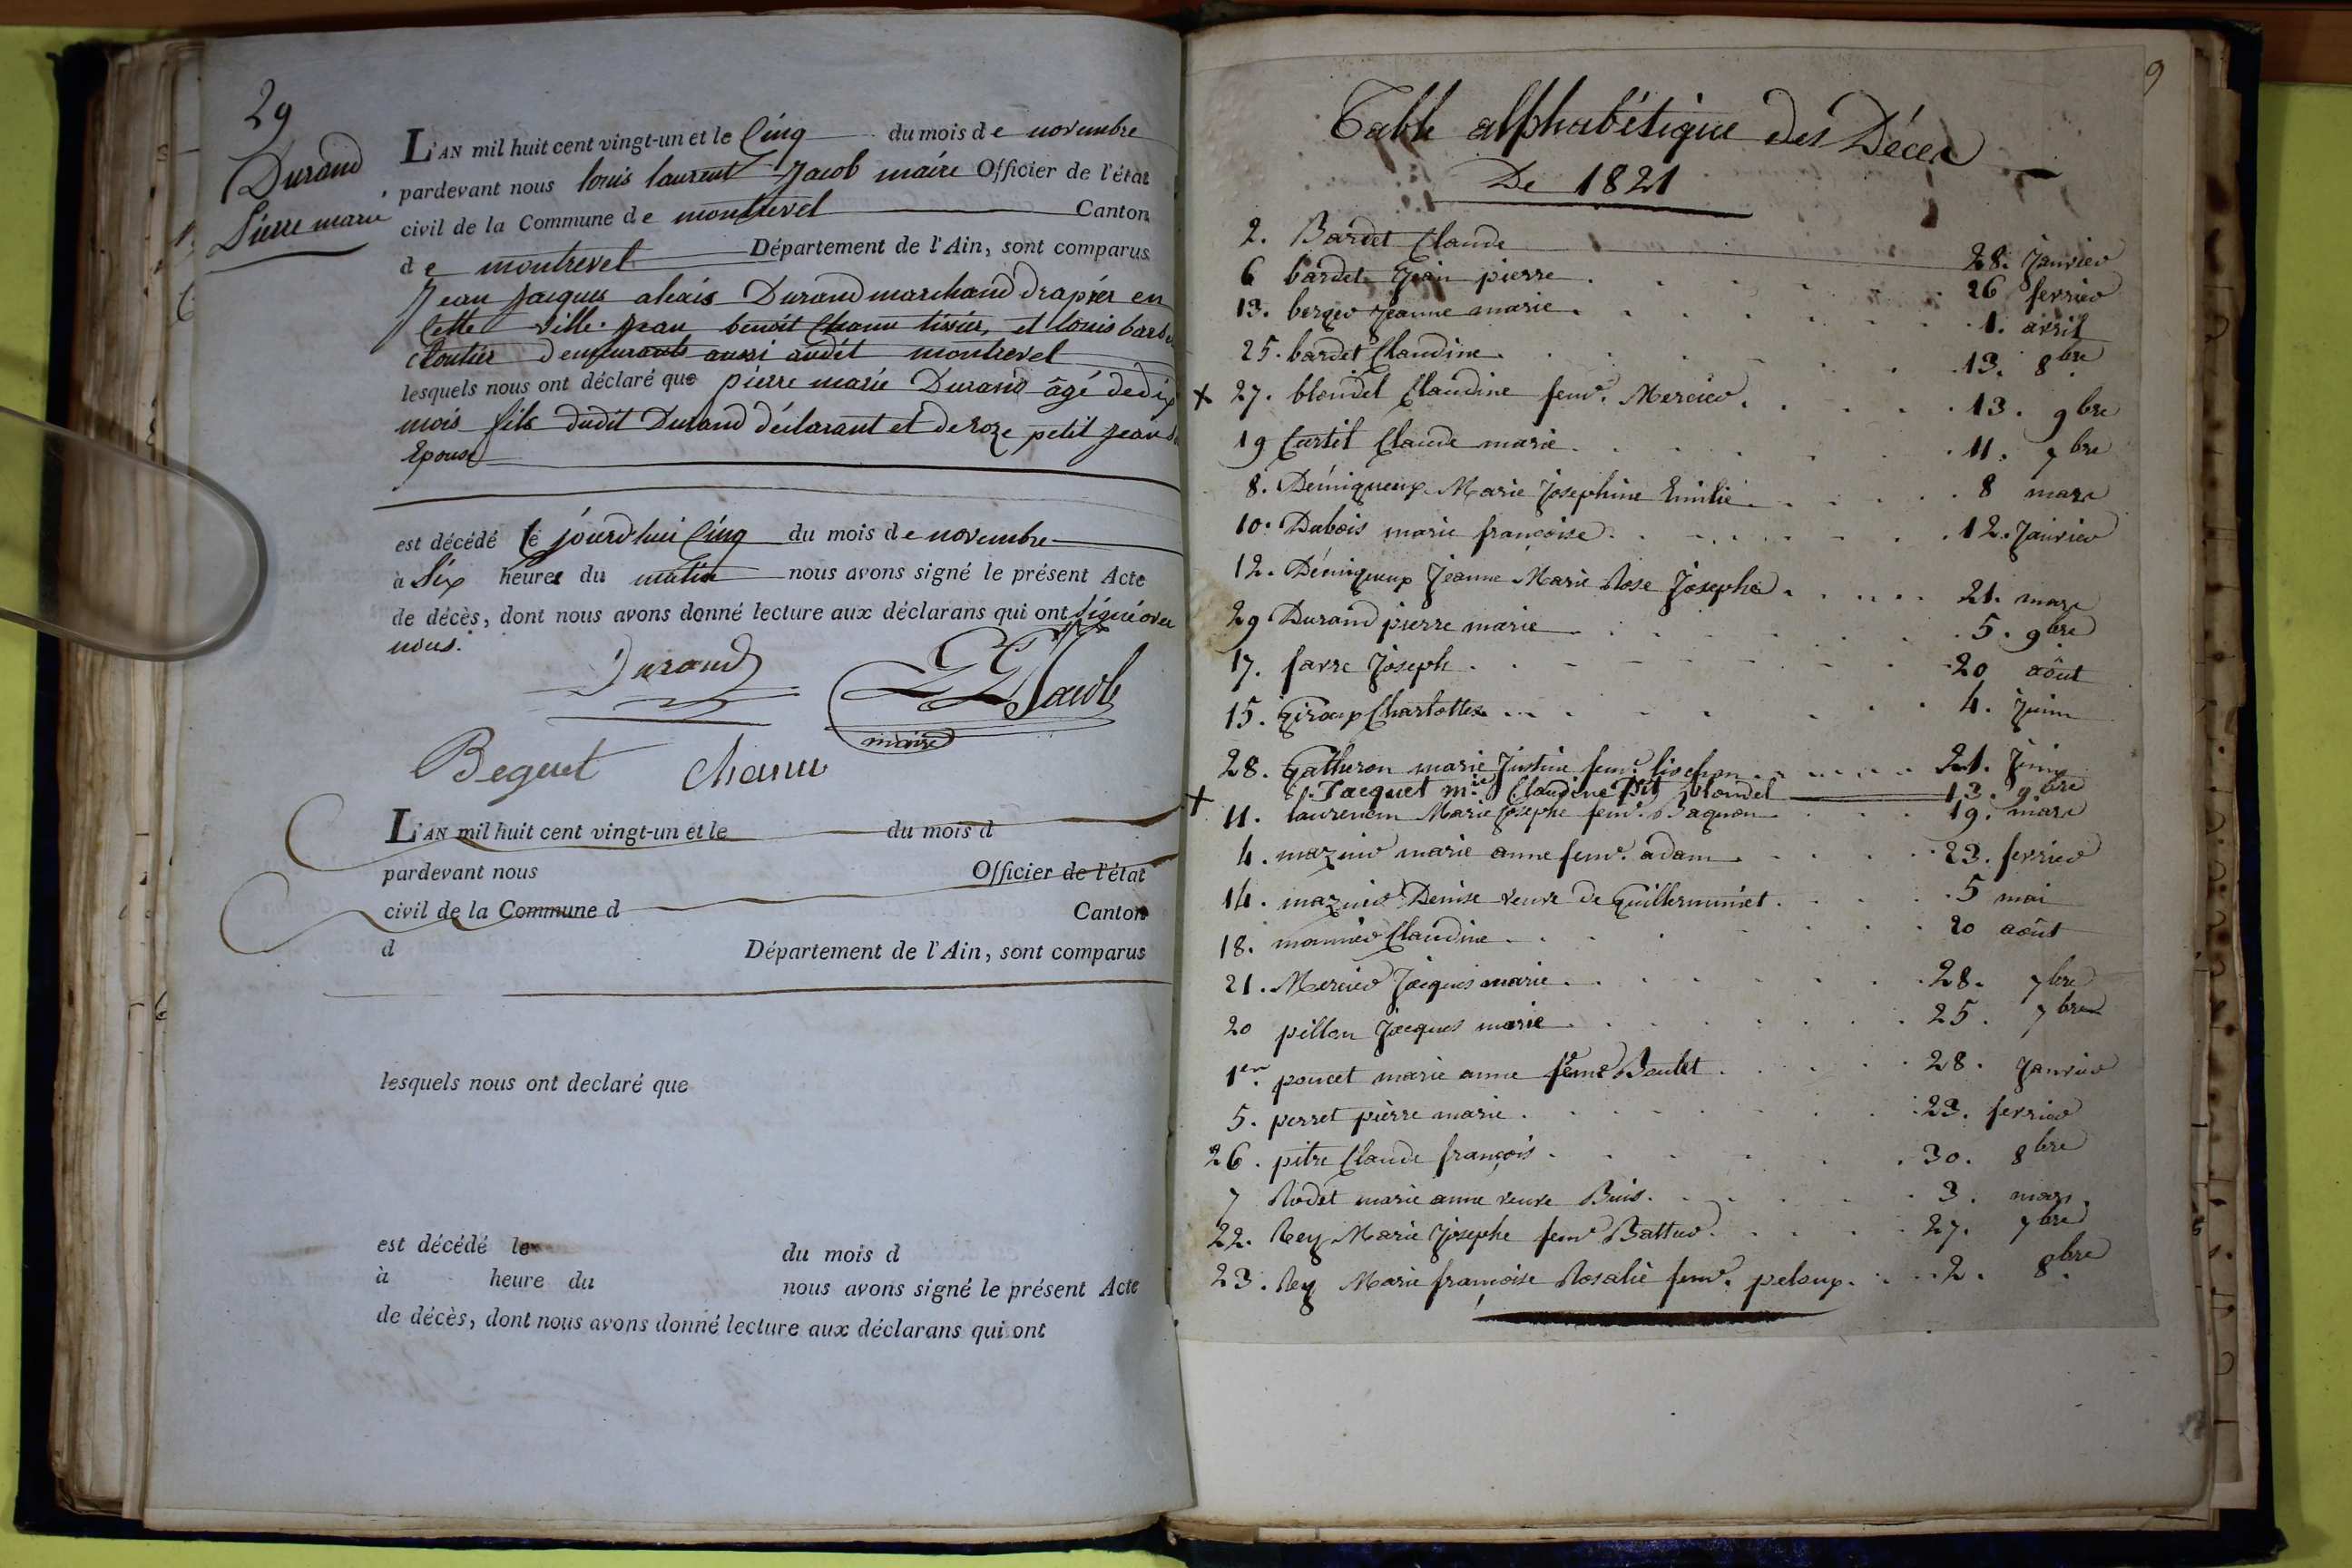 29
Durand
Pierre marie
L'AN mil huit cent vingt-un et le Cinq du mois de novembre
pardevant nous louis laurent Jacob maire Officier de l'état
civil de la Commune de montrevel Canton
de montrevel Département de l'Ain, sont comparus
Jean Jacques Durand marchand drapier en
Cette ville. Jean benoit Chanu tissier, et louis
Cloutier demeurants aussi audit montrevel
lesquels nous ont déclaré que pierre marie Durand âgé de dix
mois fils dudit Durand déclarant et de roze petit jean
Epouse
est décédé le jourd'hui Cinq du mois de novembre
à Six heures du matin nous avons signé le présent Acte
de décès, dont nous avons donné lecture aux déclarans qui ont signé avec
nous.
Durand
LL Jacob
maire
Beguet Chanu
L'AN mil huit cent vingt-un et le du mois d
pardevant nous Officier de l'état
civil de la Commune d Canton
d Département de l'Ain, sont comparus
lesquels nous ont declaré que
est décédé le du mois d
à heure du nous avons signé le présent Acte
de décès, dont nous avons donné lecture aux déclarans qui ont
9
Table alphabétique des Décès
De 1821
2. Bardet Claude 28. Janvier
6 bardet Jean pierre 26 fevrier
13. berger Jeanne marie 1. avril
25. bardet Claudine 13. 8bre
x 27. blondel Claudine fem. Mercier 13. 9bre
19 Curtil Claude marie 11. 7bre
8. Démiqueux Marie Josephine Emilie 8 mars
10. Dubois marie françoise 12. Janvier
12. Démiqueux Jeanne Marie Rose Josephe 21. mars
29 Durand pierre marie 5. 9bre
17. favre Joseph 20 août
15. Giroux Charlotte 4. Juin
28. Gatheron marie Justine fem. 21. Juin
x Jacquet mie Claudine dit blondel 13. 9bre
11. laurencin Marie Josephe fem. Baguon 19. mars
4. mazuir marie anne fem. adam 23. fevrier
14. mazuir Denise veuve de Guillerminet 5 mai
18. monnier Claudine 20 août
21. Mercier Jacques marie 28. 7bre
20 pillon Jacques marie 25. 7bre
1er. poncet marie anne feme Boulet 28. Janvier
5. perret pierre marie 23. fevrier
26. pitre Claude françois 30. 8bre
7 Rodet marie anne veuve Buis 3. mars.
22. Rey Marie Josephe fem. 27. 7bre
23. Rey Marie françoise Rosalie fem. peloux. 2. 8bre